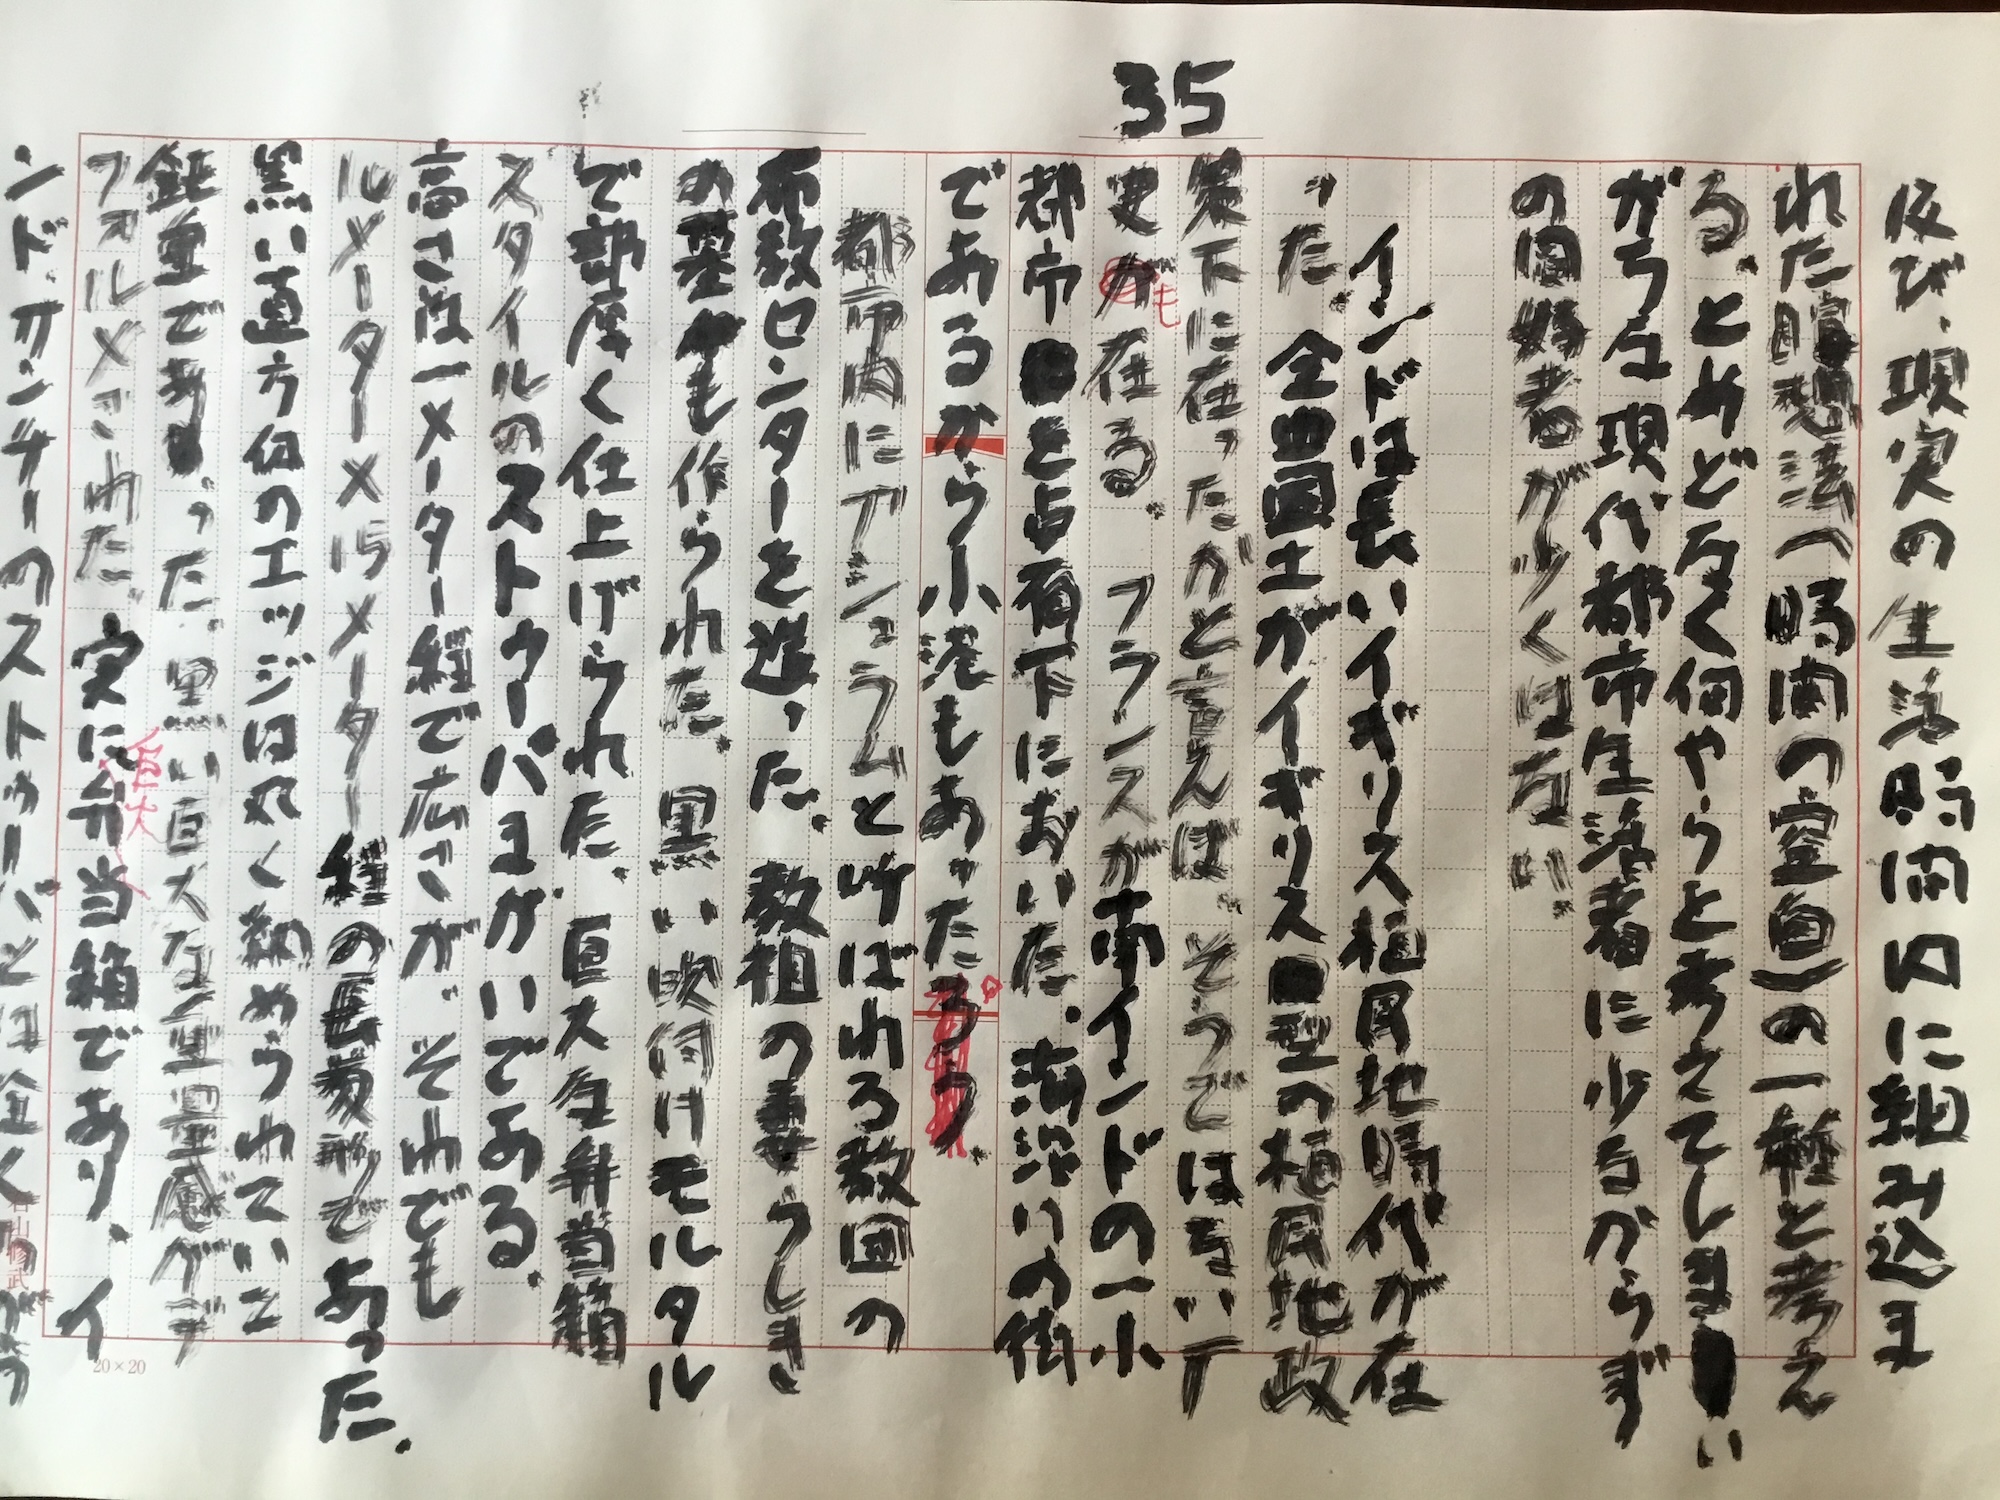 35
及び、現実の生活時間内に組み込ま
れた瞑想法(時間の空白)の一種と考え
る。とめどなく何やらと考えてしまい
がちな現代都市生活者に少なからず
の同好者がツくはない。
インドは長いイギリス植民地時代が在
った。全国土がイギリス型の植民地政
策下に在ったがと言えば、そうではない歴
史も在る。フランスが南インドの一小
都市を占有下においた。海沿いの街
であるから小港もあった。
都市内にアシュラムと呼ばれる教団の
布教センターを造った。教祖の妻らしき
の墓も作られた。黒い吹付けモルタル
で部厚く仕上げられた、巨大な弁当箱
スタイルのストゥーパまがいである。
高さは一メーター程で広さが、それでも
ルメーター×15メーター程の長菱形であった。
黒い直方体のエッジは丸く納められていて
鈍重であった。黒い巨大な重量感がデ
フォルメされた。実に巨大弁当箱であり、イ
ンド、サンチーのストゥーパとは全くちがう
20×20
石山修武